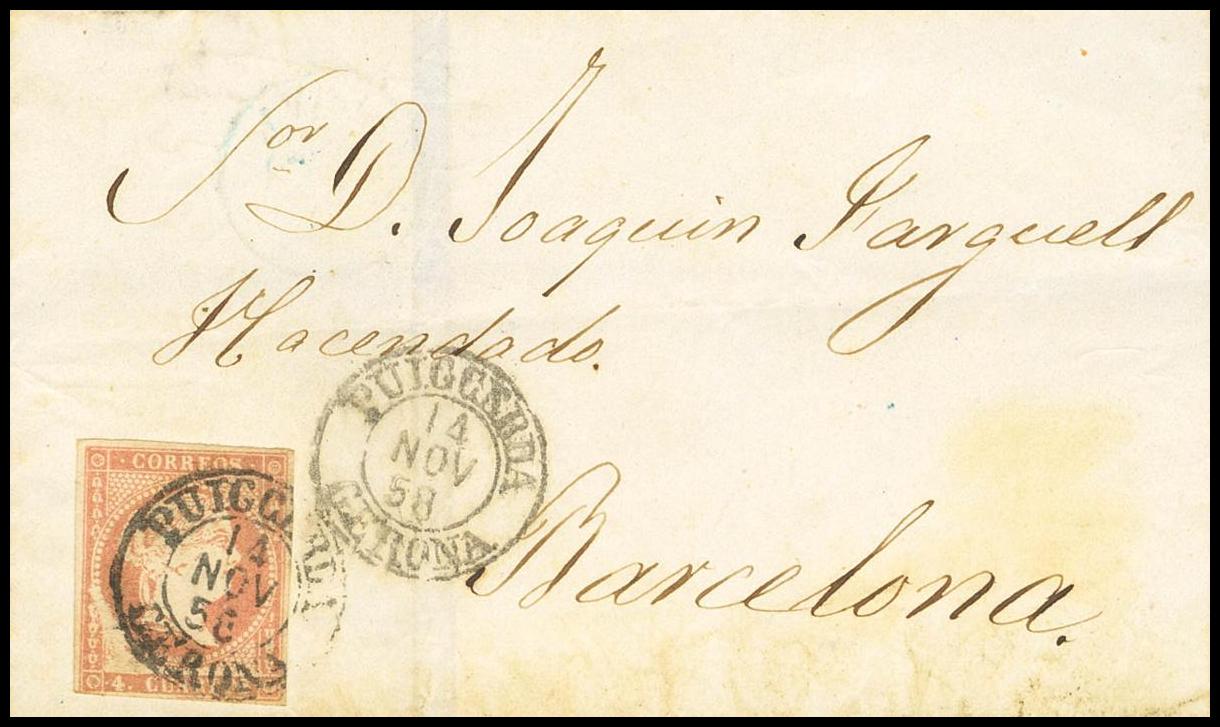 Sor D. Joaquin Farguell
Hacendado.
PUIGCERDA
14
NOV
58
GERONA
Barcelona.
CORREOS
PUIGCERDA
14
NOV
58
GERONA
4. CU